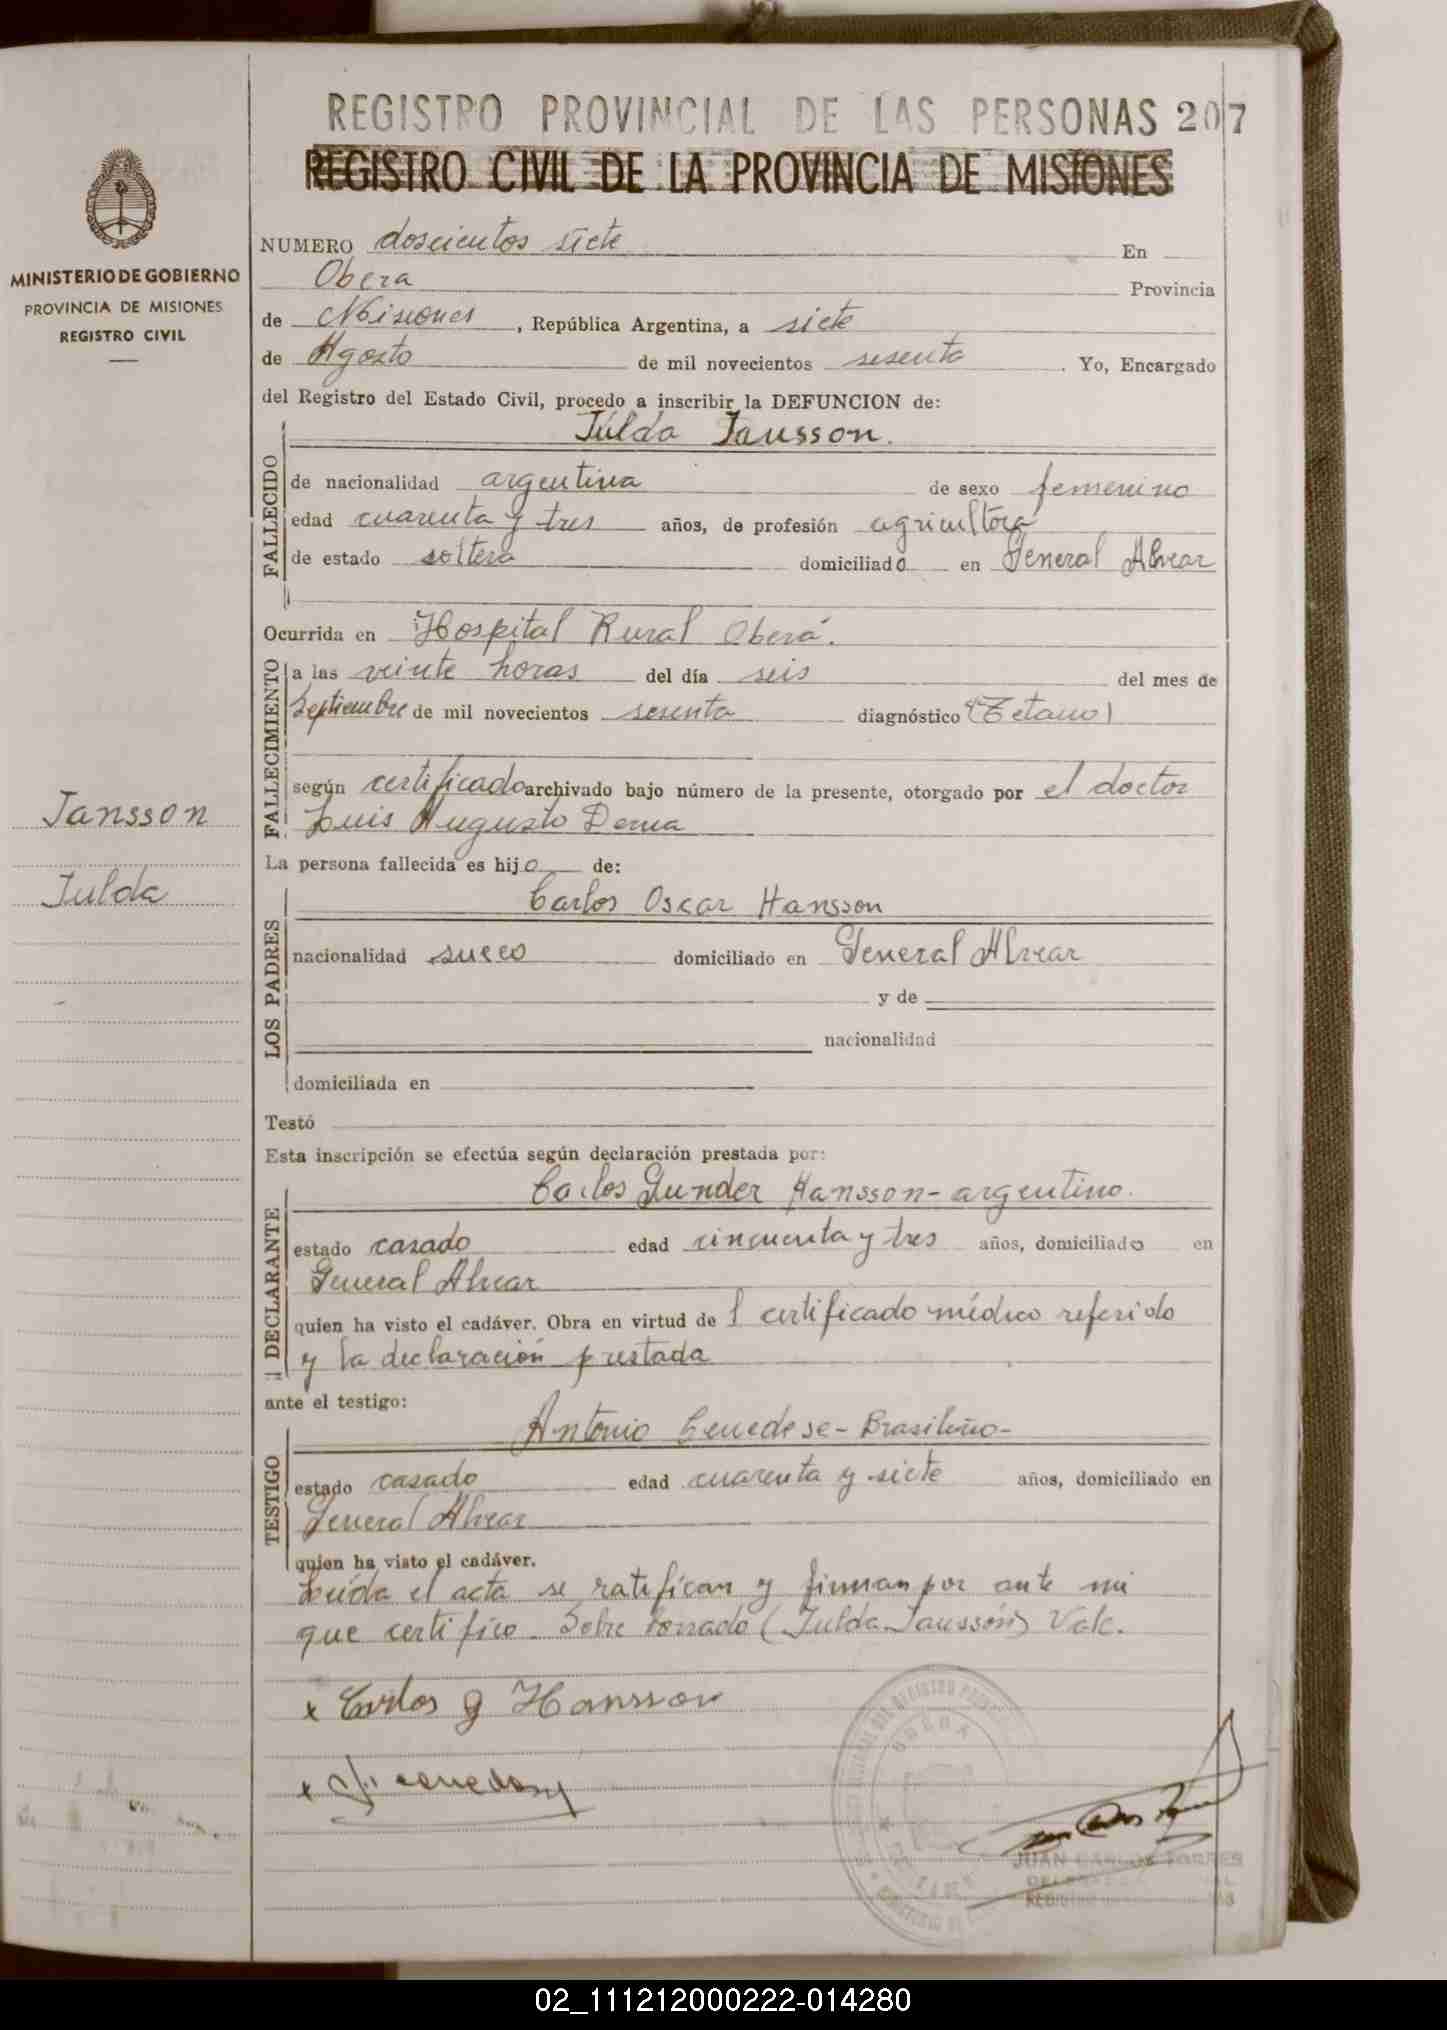 REGISTRO PROVINCIAL DE LAS PERSONAS 207
REGISTRO CIVIL DE LA PROVINCIA DE MISIONES
MINISTERIO DE GOBIERNO
PROVINCIA DE MISIONES
REGISTRO CIVIL
NUMERO doscientos siete En
Obera Provincia
de Misiones, República Argentina, a siete
de Agosto de mil novecientos sesenta. Yo, Encargado
del Registro del Estado Civil, procedo a inscribir la DEFUNCION de:
Julda Jansson.
FALLECIDO
de nacionalidad argentina de sexo femenino
edad cuarenta y tres años, de profesión agricultora
de estado soltera domiciliada en General Alvear
Ocurrida en Hospital Rural Oberá.
FALLECIMIENTO
a las veinte horas del día seis del mes de
Septiembre de mil novecientos sesenta diagnóstico (Tetano)
según certificado archivado bajo número de la presente, otorgado por el doctor
Luis Augusto Derna
Jansson
Julda
La persona fallecida es hija de:
LOS PADRES
Carlos Oscar Hansson
nacionalidad sueco domiciliado en General Alvear
y de
nacionalidad
domiciliada en
Testó
Esta inscripción se efectúa según declaración prestada por:
DECLARANTE
Carlos Gunder Hansson - argentino.
estado casado edad cincuenta y tres años, domiciliado en
General Alvear
quien ha visto el cadáver. Obra en virtud del certificado médico referido
y la declaración prestada
ante el testigo:
TESTIGO
Antonio Cenedese - Brasileño -
estado casado edad cuarenta y siete años, domiciliado en
General Alvear
quien ha visto el cadáver.
Leída el acta se ratifican y firman por ante mi
que certifico. Sobre borrado (Julda Jansson) Vale.
x Carlos g Hansson
OBERA
JUAN CARLOS TORRES
02_111212000222-014280